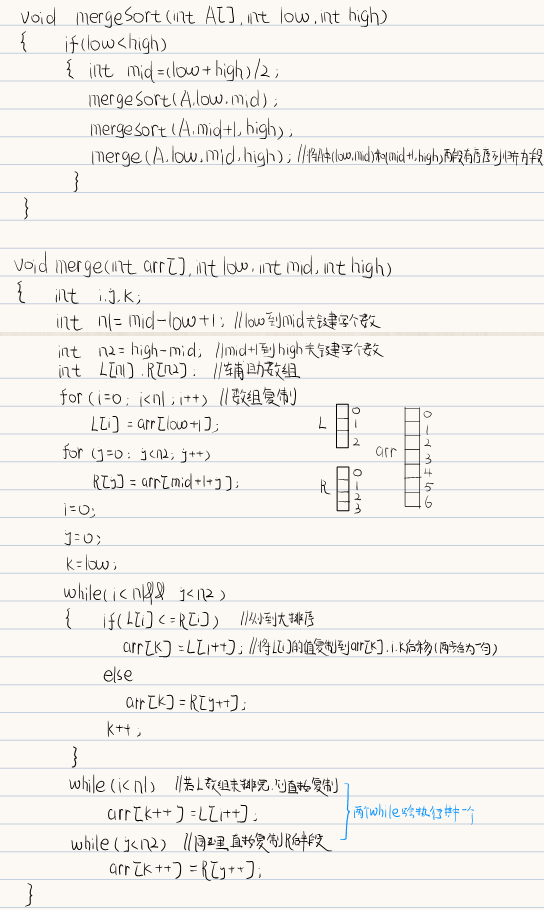 void mergeSort(int A[],int low,int high)
{ if(low<high)
{ int mid=(low+high)/2;
mergeSort(A,low,mid);
mergeSort(A,mid+1,high);
merge(A,low,mid,high); //将A中(low,mid)和(mid+1,high)两段有序序列归并为一段
}
}
void merge(int arr[],int low,int mid,int high)
{ int i,j,k;
int n1=mid-low+1; //low到mid关键字个数
int n2=high-mid; //mid+1到high关键字个数
int L[n1],R[n2]; //辅助数组
for(i=0;i<n1;i++) //数组复制
L[i]=arr[low+i];
for(j=0;j<n2;j++)
R[j]=arr[mid+1+j];
L 0 1 2
R 0 1 2 3
arr 0 1 2 3 4 5 6
i=0;
j=0;
k=low;
while(i<n1&& j<n2)
{ if(L[i]<=R[i]) //从小到大排序
arr[k]=L[i++]; //将L[i]的值复制到arr[k],i,k后移(两句合为一句)
else
arr[k]=R[j++];
k++;
}
while(i<n1) //若L数组未排完,则直接复制
arr[k++]=L[i++];
while(j<n2) //同理,直接复制R后半段
arr[k++]=R[j++];
两个while只会执行其中一个
}